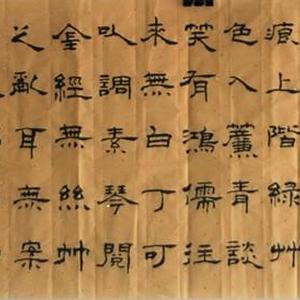 痕上階綠艸
色入簾青談
笑有鴻儒往
來無白丁可
以調素琴閱
金經無絲竹
之亂耳無案